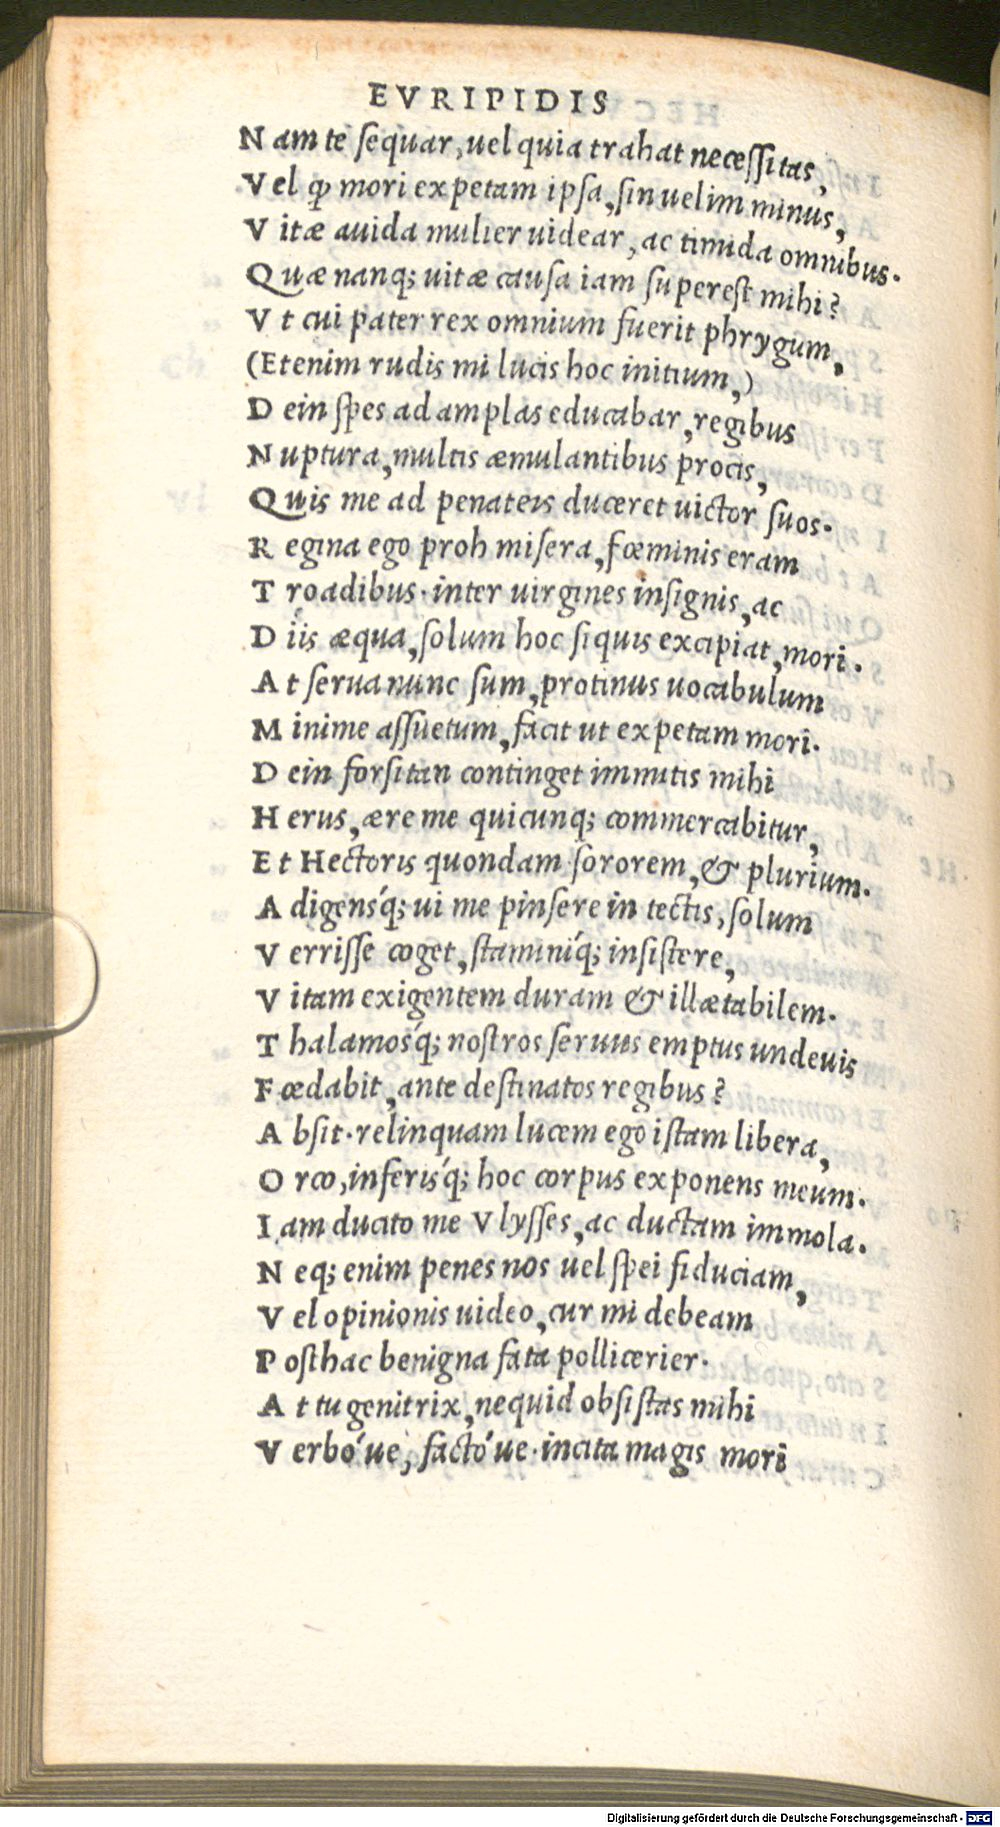 EVRIPIDIS
Nam te sequar, uel quia trahat necessitas,
Vel ꝙ mori expetam ipsa, sin uelim minus,
Vitæ auida mulier uidear, ac timida omnibus.
Quæ nanq; uitæ causa iam superest mihi?
Vt cui pater rex omnium fuerit phrygum,
(Etenim rudis mi lucis hoc initium,)
Dein spes ad amplas educabar, regibus
Nuptura, multis æmulantibus procis,
Quis me ad penateis duceret uictor suos.
Regina ego proh misera, fœminis eram
Troadibus. inter uirgines insignis, ac
Diis æqua, solum hoc siquis excipiat, mori.
At serua nunc sum, protinus uocabulum
Minime assuetum, facit ut expetam mori.
Dein forsitan continget immitis mihi
Herus, ære me quicunq; commercabitur,
Et Hectoris quondam sororem, & plurium.
Adigensq́; ui me pinsere in tectis, solum
Verrisse coget, staminiq́; insistere,
Vitam exigentem duram & illætabilem.
Thalamosq́; nostros seruus emptus undeuis
Fœdabit, ante destinatos regibus?
Absit. relinquam lucem ego istam libera,
Orco, inferisq́; hoc corpus exponens meum.
Iam ducito me Vlysses, ac ductam immola.
Neq; enim penes nos uel spei fiduciam,
Vel opinionis uideo, cur mi debeam
Posthac benigna fata pollicerier.
At tu genitrix, nequid obsistas mihi
Verbóue, factóue. incita magis mori
Digitalisierung gefördert durch die Deutsche Forschungsgemeinschaft - DFG